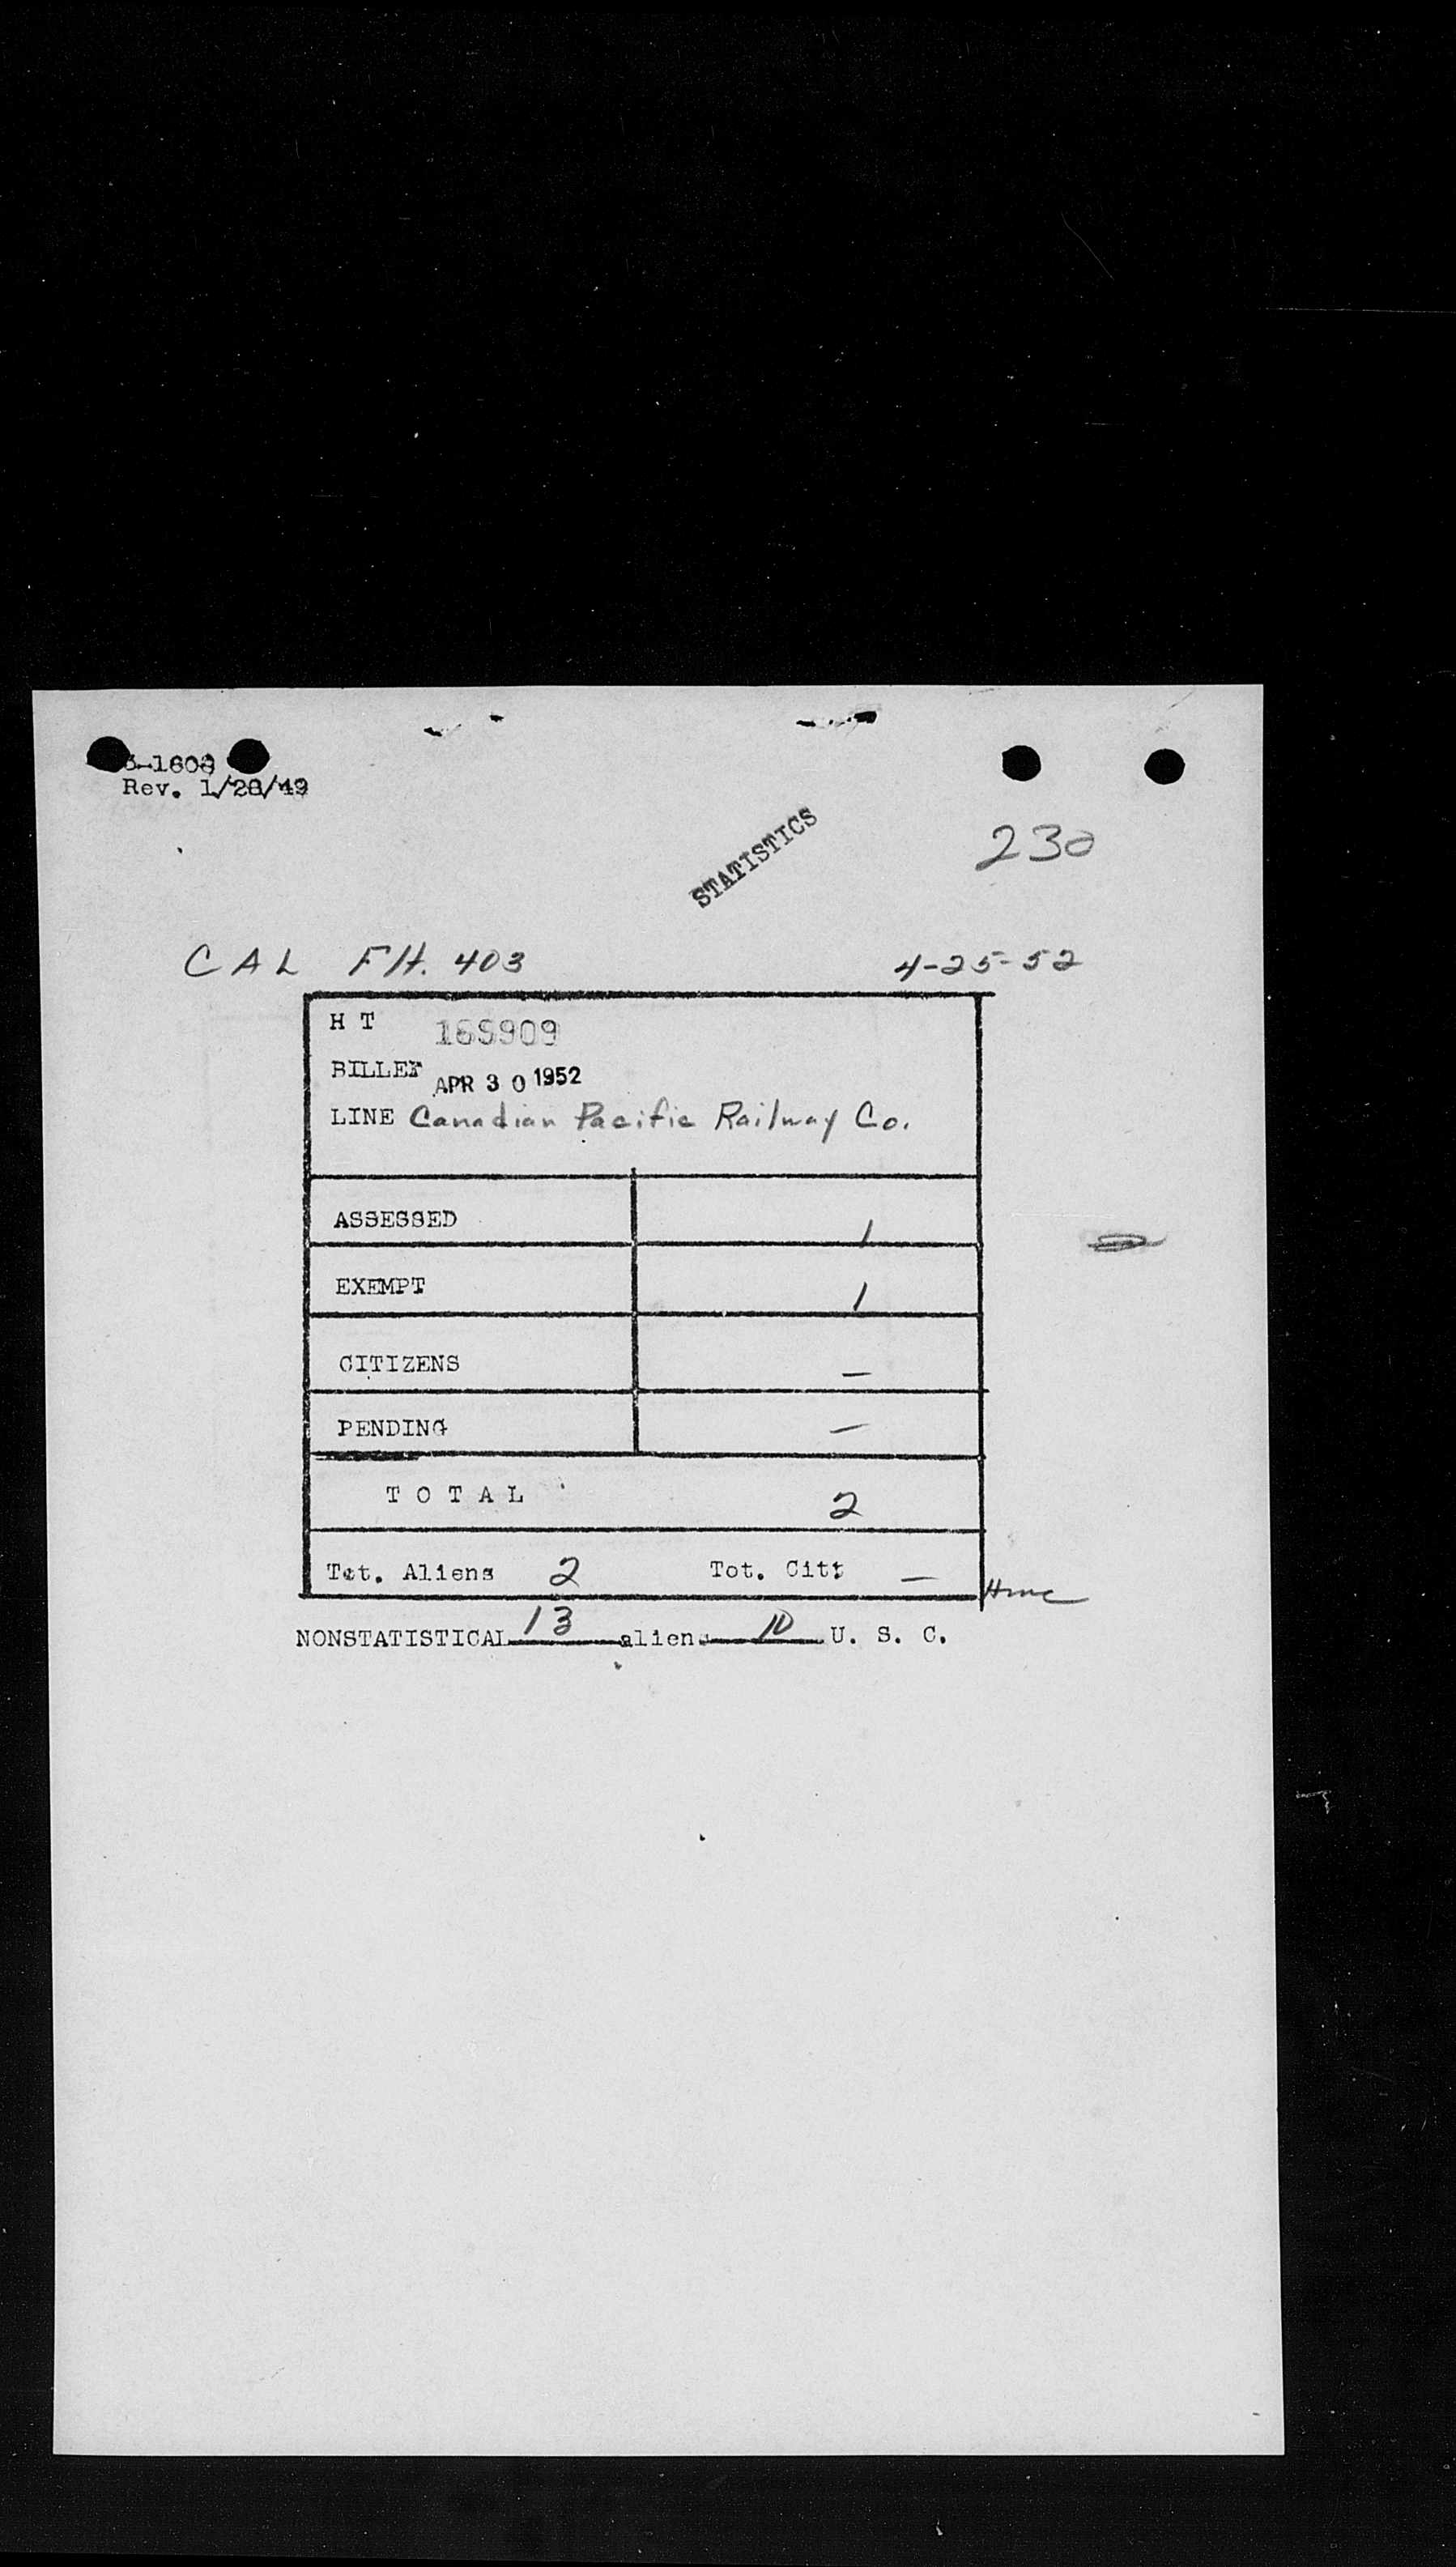 3-1608
Rev. 1/28/49
STATISTICS
230
CAL Flt. 403 4-25-52
H T 165909
BILLET APR 30 1952
LINE Canadian Pacific Railway Co.
ASSESSED 1
EXEMPT 1
CITIZENS —
PENDING —
T O T A L 2
Tot. Aliens 2 Tot. Citz —
NONSTATISTICAL 13 aliens 10 U. S. C.